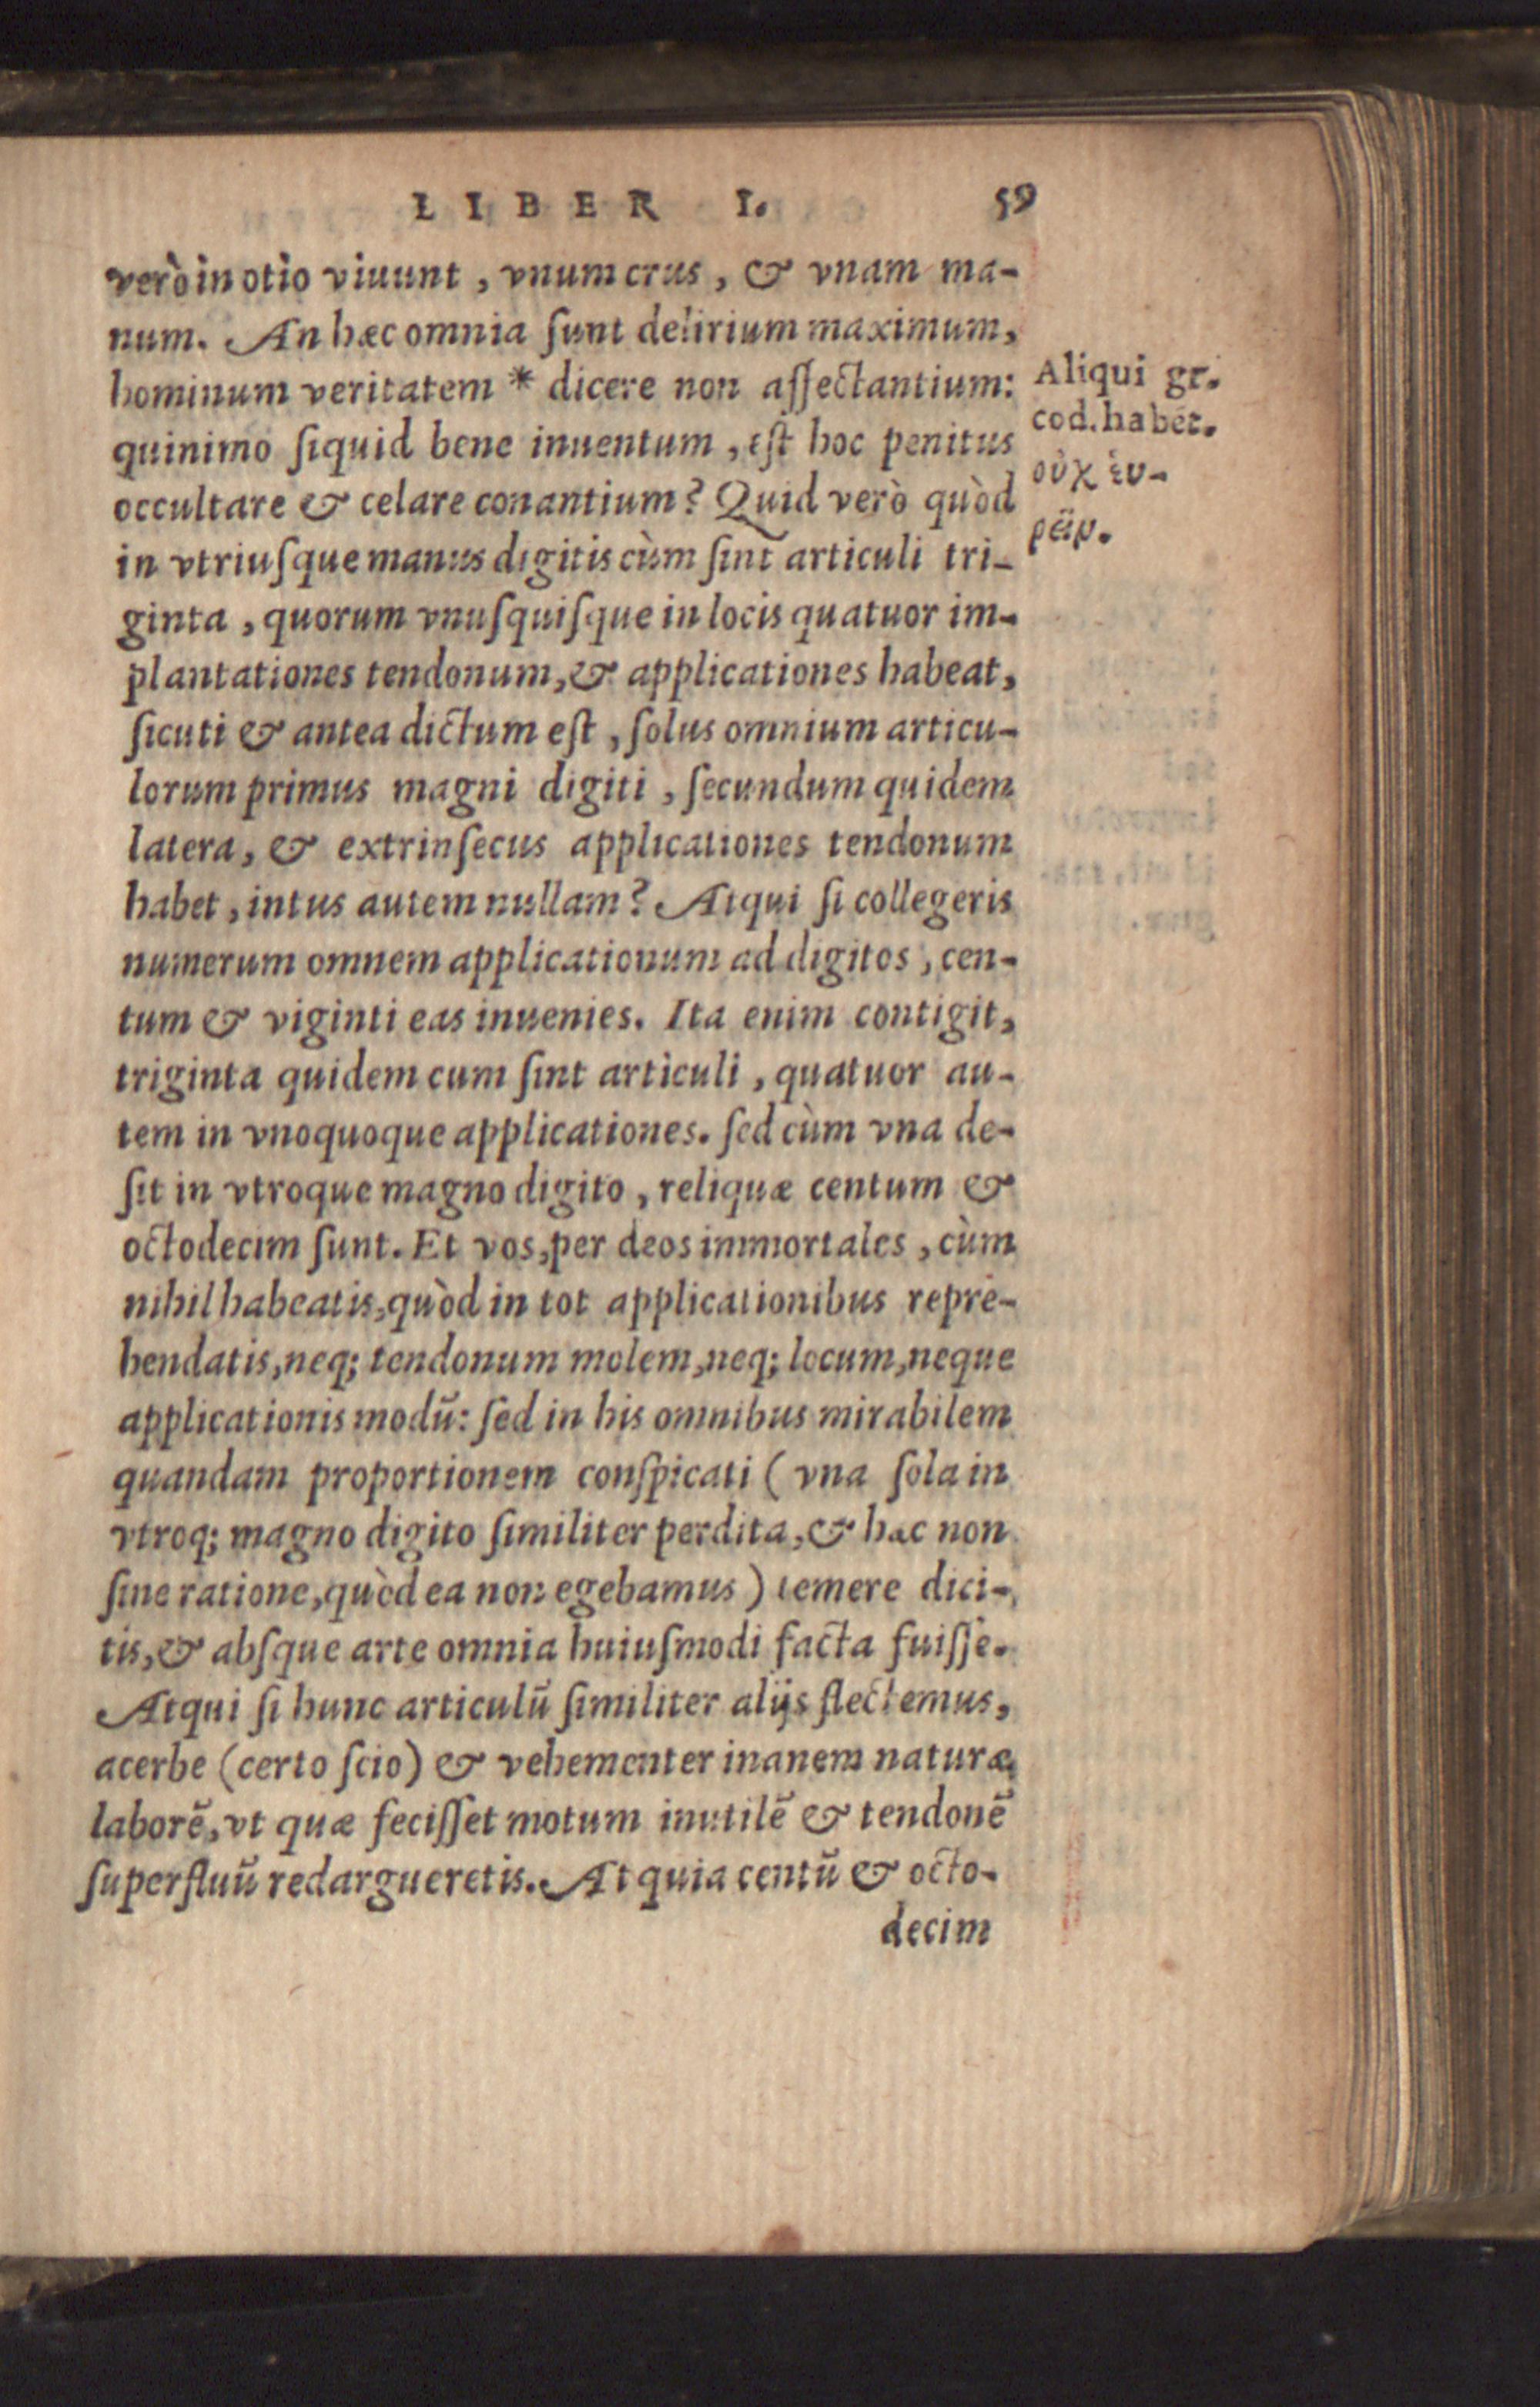 LIBER I. 59
verò in otio viuunt, vnum crus, & vnam ma-
num. An hæc omnia ſunt delirium maximum,
hominum veritatem * dicere non aſſectantium:
quinimo ſiquid bene inuentum, eſt hoc penitus
occultare & celare conantium? Quid verò quòd
in vtriuſque manus digitis cùm ſint articuli tri-
ginta, quorum vnuſquiſque in locis quatuor im-
plantationes tendonum, & applicationes habeat,
ſicuti & antea dictum eſt, ſolus omnium articu-
lorum primus magni digiti, ſecundum quidem
latera, & extrinſecus applicationes tendonum
habet, intus autem nullam? Atqui ſi collegeris
numerum omnem applicationum ad digitos, cen-
tum & viginti eas inuenies. Ita enim contigit,
triginta quidem cum ſint articuli, quatuor au-
tem in vnoquoque applicationes. ſed cùm vna de-
ſit in vtroque magno digito, reliquæ centum &
octodecim ſunt. Et vos, per deos immortales, cùm
nihil habeatis, quòd in tot applicationibus repre-
hendatis, neq; tendonum molem, neq; locum, neque
applicationis modū: ſed in his omnibus mirabilem
quandam proportionem conſpicati (vna ſola in
vtroq; magno digito ſimiliter perdita, & hæc non
ſine ratione, quòd ea non egebamus) temere dici-
tis, & abſque arte omnia huiuſmodi facta fuiſſe.
Atqui ſi hunc articulū ſimiliter alijs flectemus,
acerbe (certo ſcio) & vehementer inanem naturæ
laborē, vt quæ feciſſet motum inutilē & tendonē
ſuperfluū redargueretis. At quia centū & octo-
decim
Aliqui gr.
cod. habēt.
οὐχ εὑ-
ρεῖν.